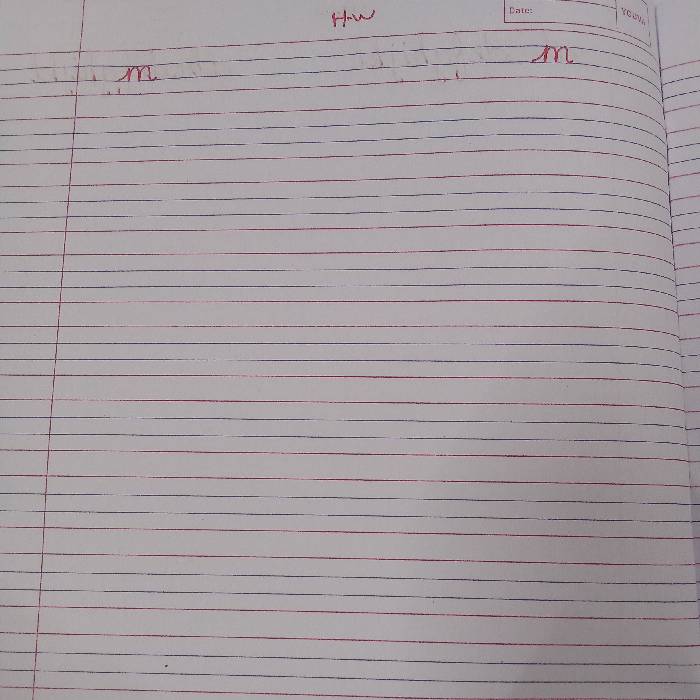 H.W
Date:
YOUVA
m m